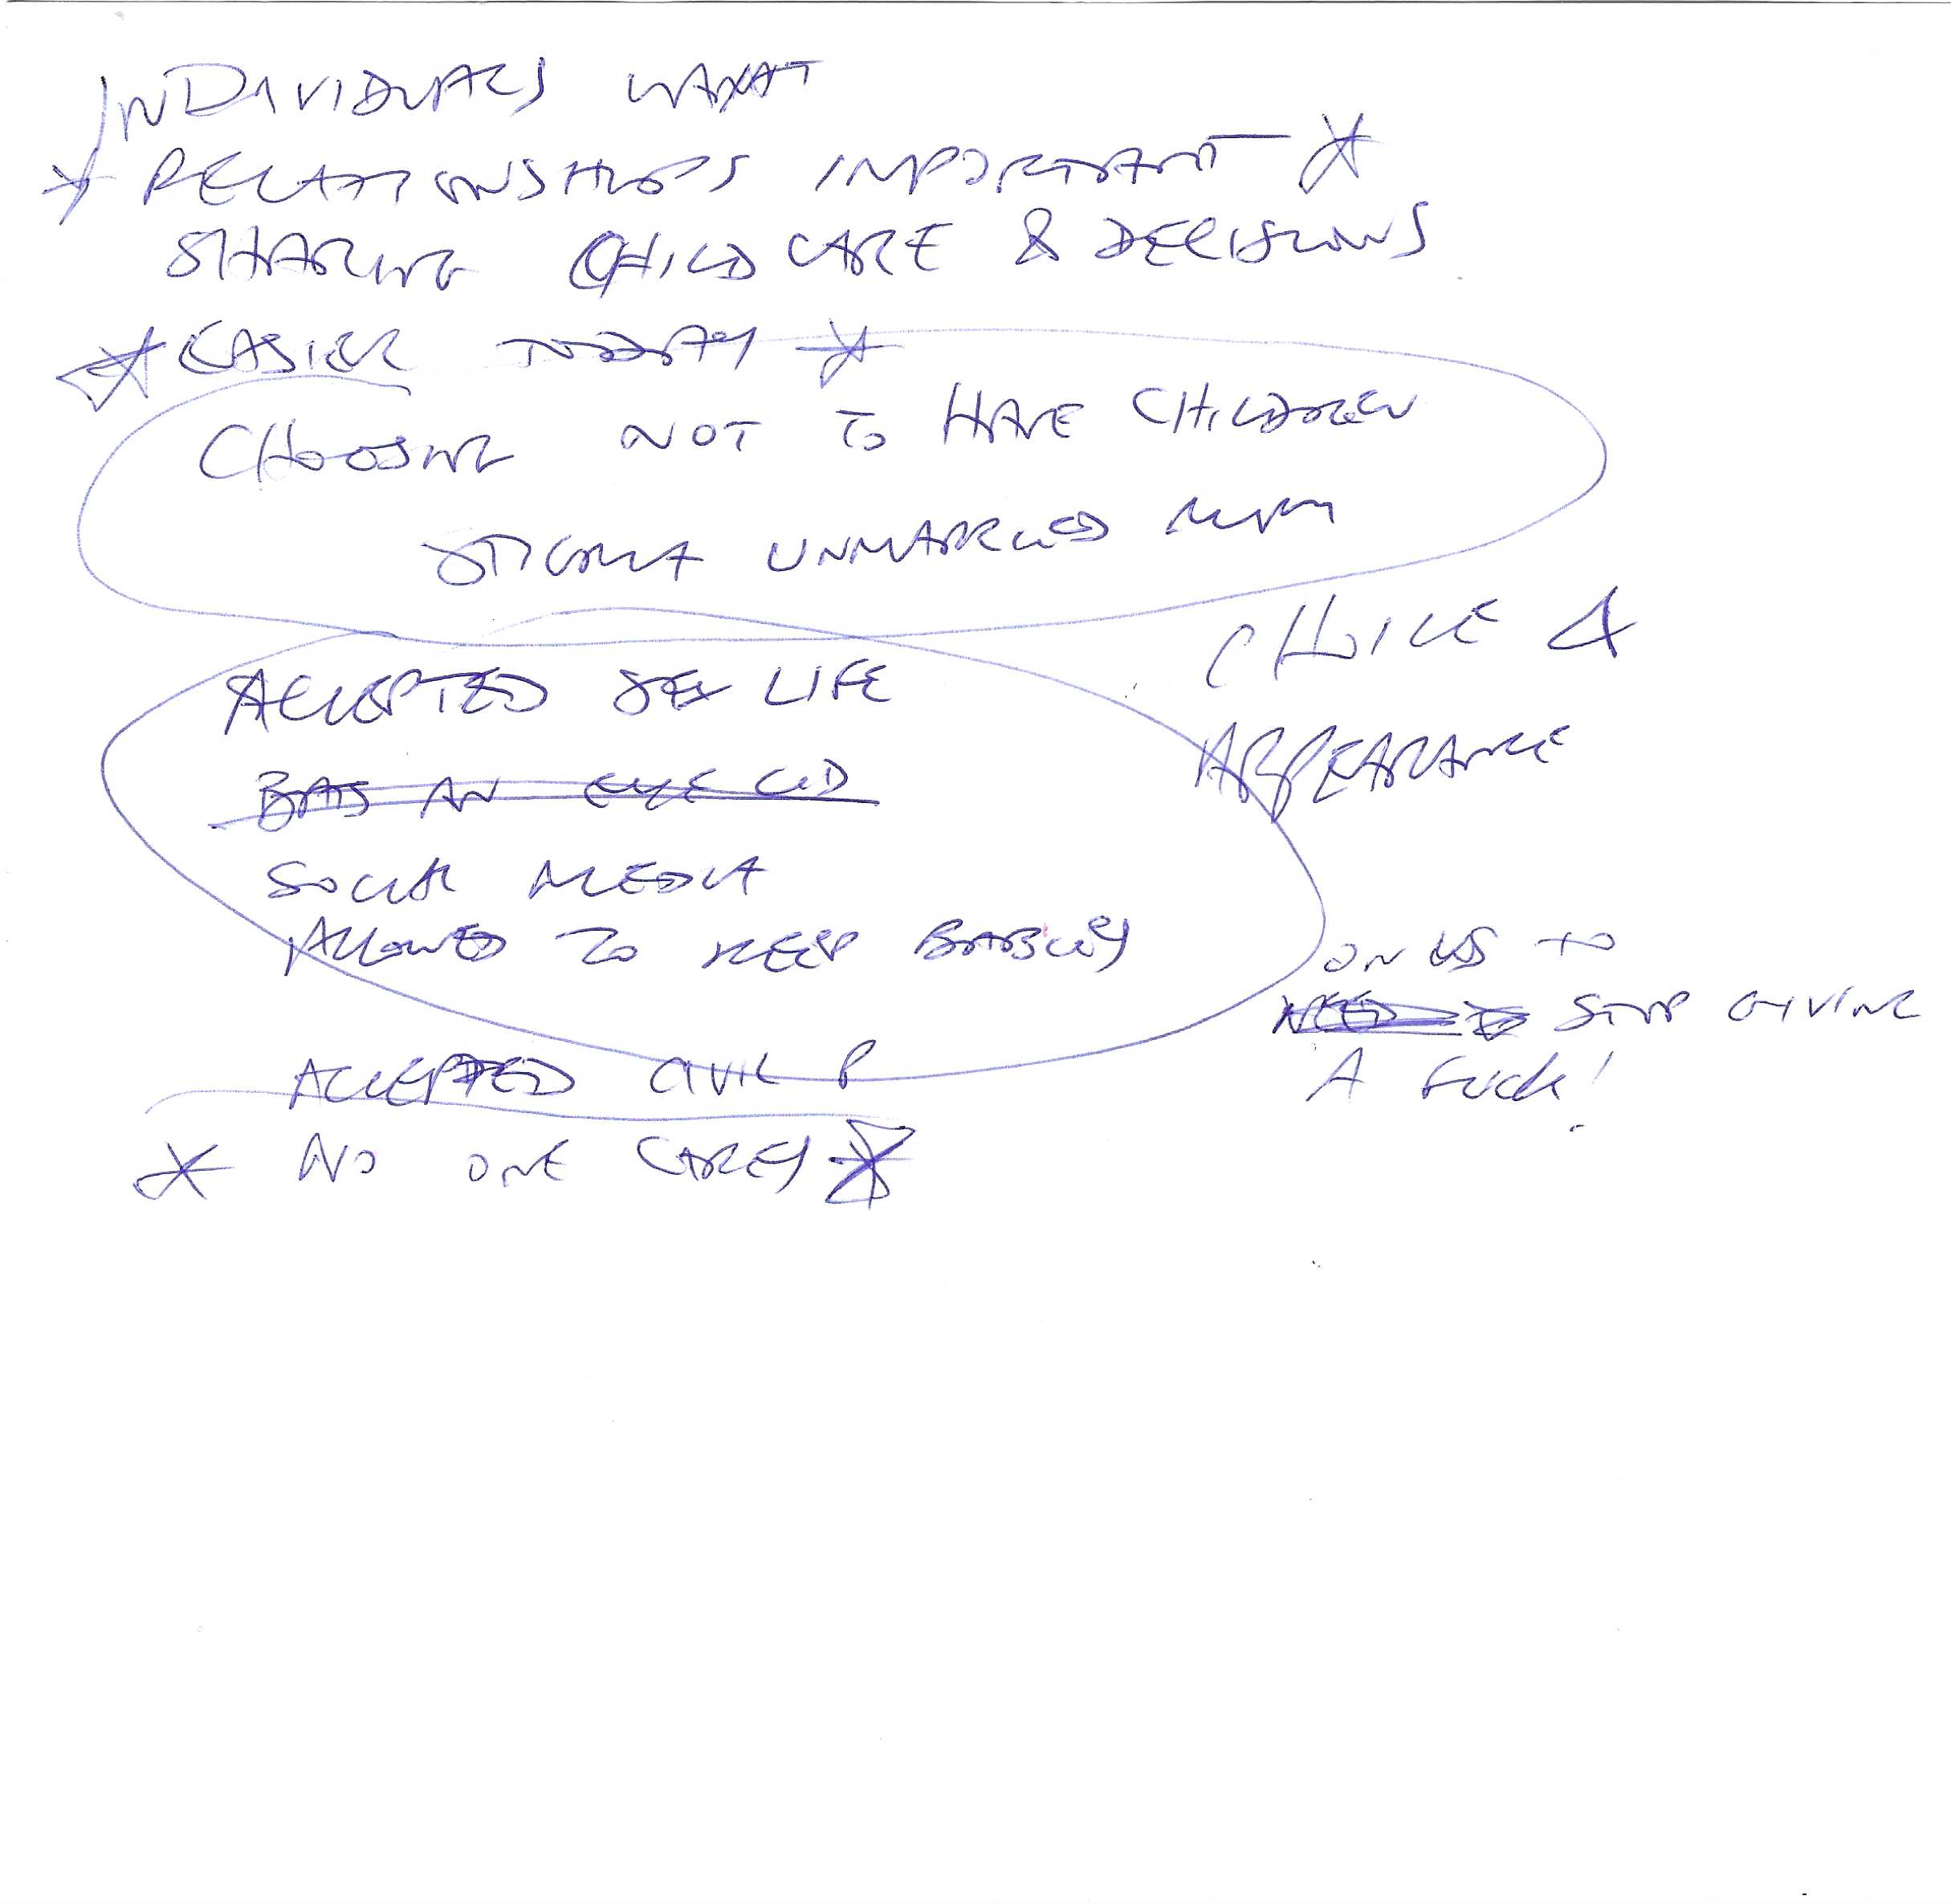 INDIVIDUALS WANT
* RELATIONSHIPS IMPORTANT *
SHARING CHILD CARE & DECISIONS
* EASIER TODAY *
CHOOSING NOT TO HAVE CHILDREN
STIGMA UNMARRIED MUM
CHOICE &
APPEARANCE
ACCEPTED SEX LIFE
BATS AN EYE LID
SOCIAL MEDIA
ALLOWED TO KEEP
ON US TO
NEED TO STOP GIVING
A FUCK!
ACCEPTED CIVIL P
* NO ONE CARES *